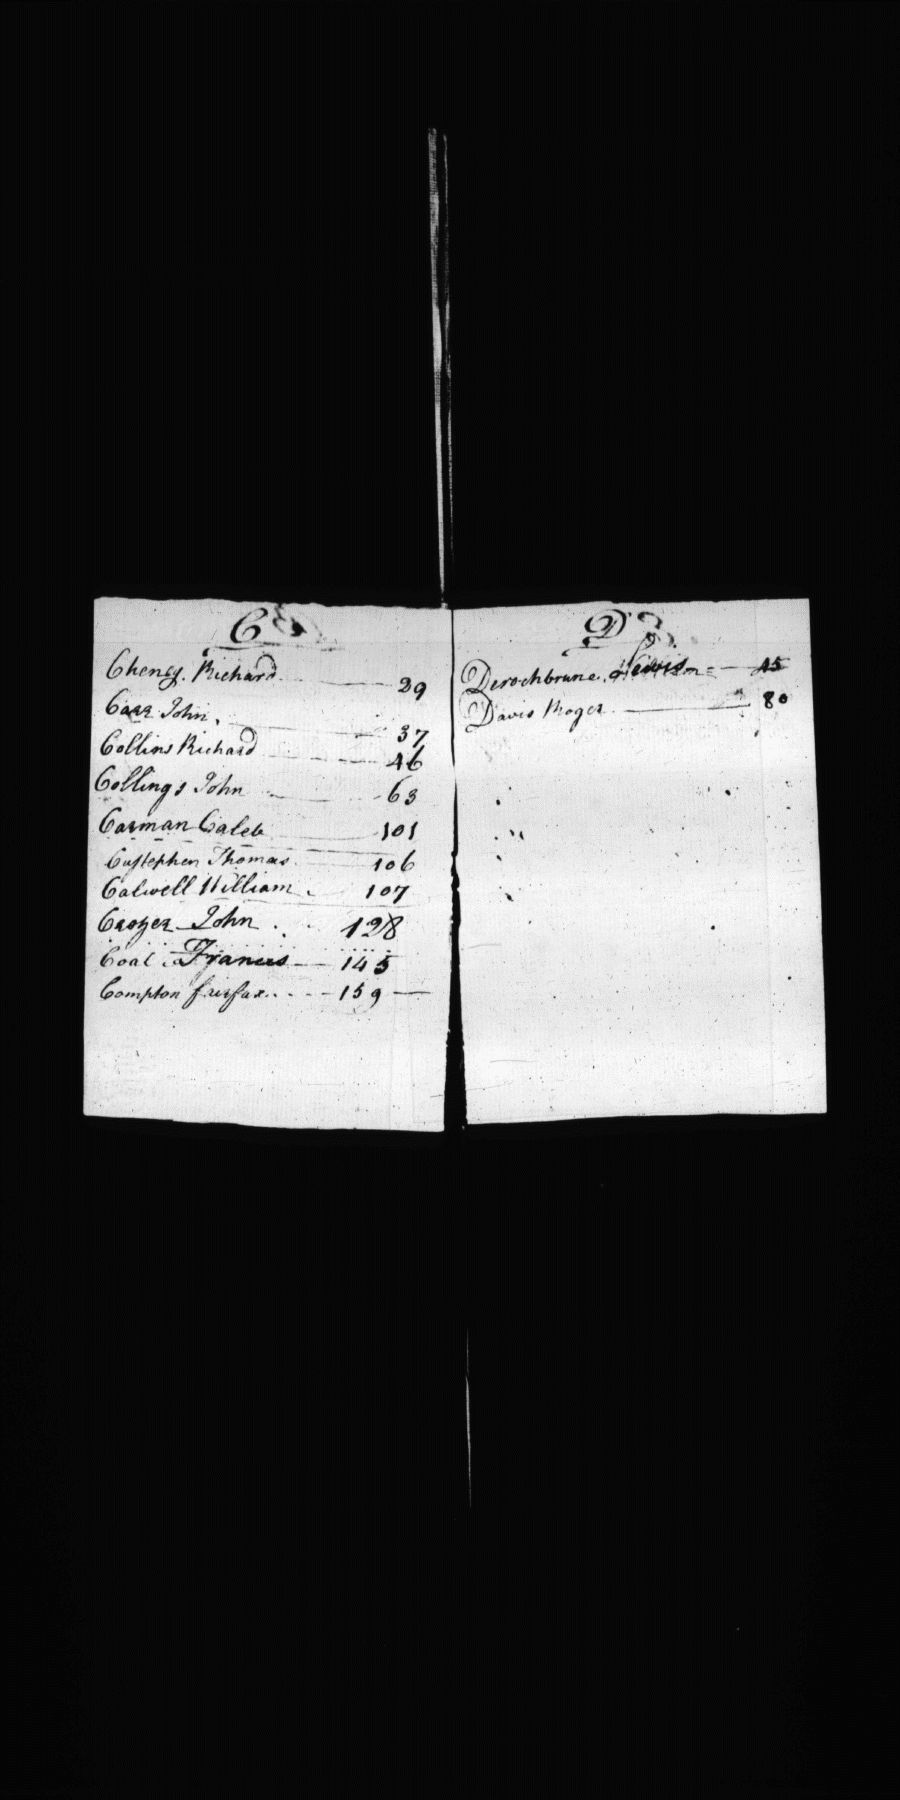 C
Cheney Richard 29
Carr John 37
Collins Richard 46
Collings John 63
Carman Caleb 101
Custephen Thomas 106
Calwell William 107
Crozer John 128
Coal Francis 145
Compton fairfax 159
D
Derochbrune Lewis 45
Davis Roger 80